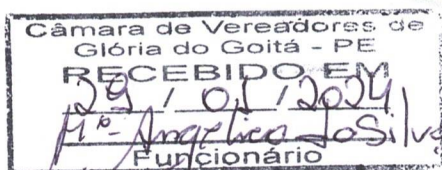 Câmara de Vereadores de
Glória do Goitá - PE
RECEBIDO EM
29 / 01 / 2024
Mª Angelica da Silva
Funcionário